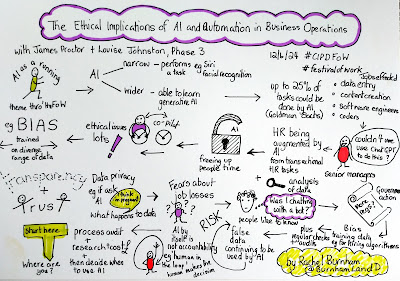 The Ethical Implications of AI and Automation in Business Operations
with James Proctor + Louise Johnston, Phase 3
12/6/24 #CIPDFoW
#festivalofwork
AI as a running
theme thro' the FoW
AI
narrow - performs
a task
eg Siri
facial recognition
wider - able to learn
generative AI
up to 25% of
tasks could be
done by AI
(Goldman Sachs)
Jobs affected
data entry
content creation
software engineers
coders
eg BIAS
trained
on diverse
range of data
ethical issues
lots!
co-pilot
AI
freeing up
people time
HR being
augmented by
AI
from
transactional
HR tasks
couldn't we
use ChatGPT
to do this?
senior managers
Transparency
+
Trust
Data privacy
eg if ask
AI
think
I'm pregnant
what happens to data
Fears about
job losses
AI by
itself is
not accountability
eg human in
the loop
human makes the
decision
RISK
people like to know
Was I chatting
with a bot?
+
analysis
of data
false
data
continuing to be
used by AI
plus
regular
checks
+ audits
Bias
training data
eg for hiring algorithms
Government
action
More
regs?
Start here
where are you?
process audit
+
research + cost
then decide when
to use AI
by Rachel Burnham
@BurnhamLandD